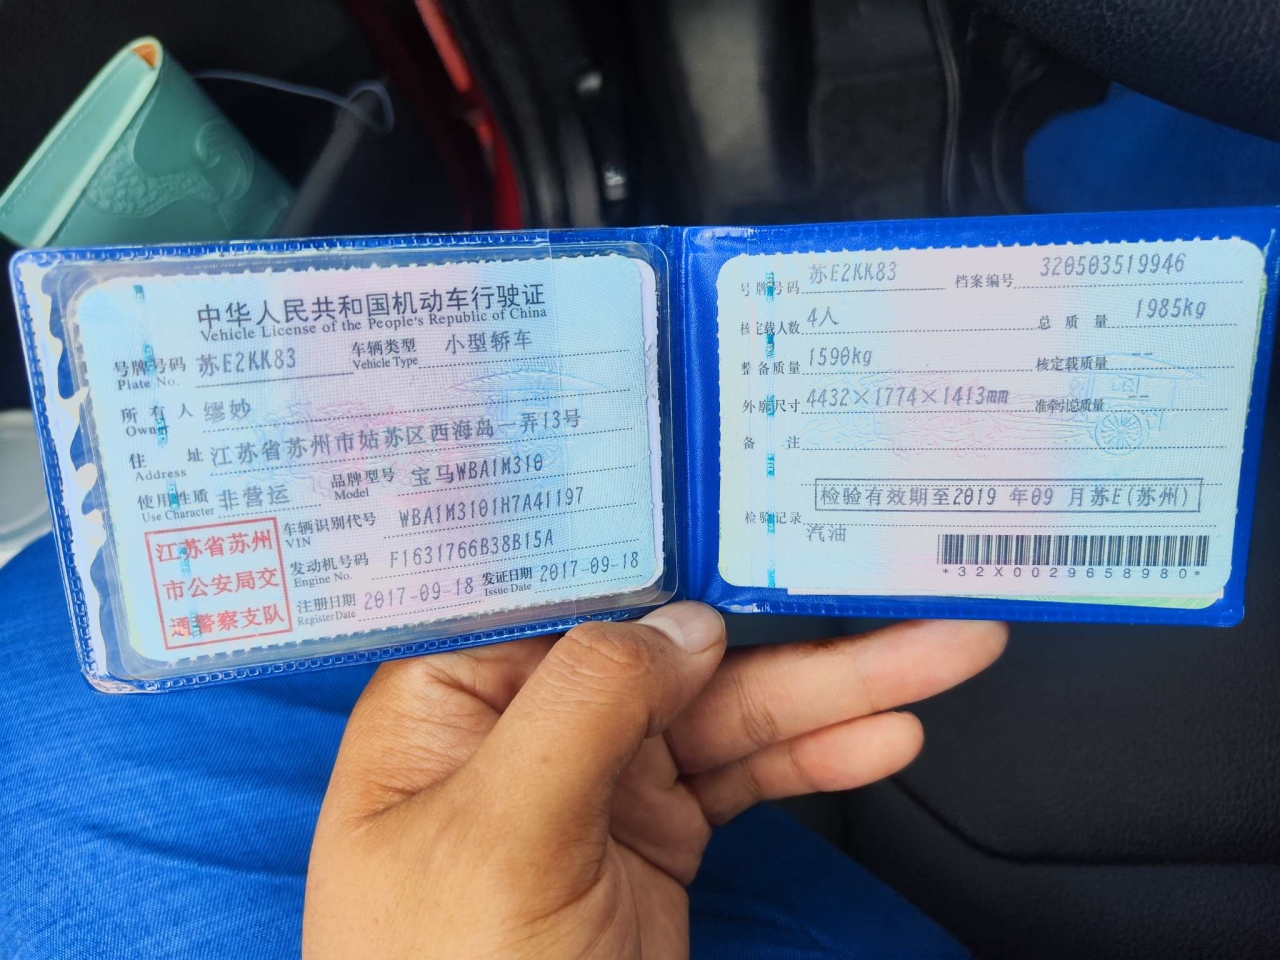 中华人民共和国机动车行驶证
Vehicle License of the People's Republic of China
号牌号码 苏E2KK83 车辆类型 小型轿车
Plate No. Vehicle Type
所有人 缪妙
Owner
住址 江苏省苏州市姑苏区西海岛一弄13号
Address
使用性质 非营运 品牌型号 宝马WBA1M310
Use Character Model
江苏省苏州
市公安局交
通警察支队
车辆识别代号 WBA1M3101H7A41197
VIN
发动机号码 F1631766B38B15A
Engine No.
注册日期 2017-09-18 发证日期 2017-09-18
Register Date Issue Date
号牌号码 苏E2KK83 档案编号 320503519946
核定载人数 4人 总质量 1985kg
整备质量 1590kg 核定载质量 --
外廓尺寸 4432×1774×1413mm 准牵引总质量 --
备注
检验有效期至2019 年09 月苏E(苏州)
检验记录
汽油
*32X0029658980*